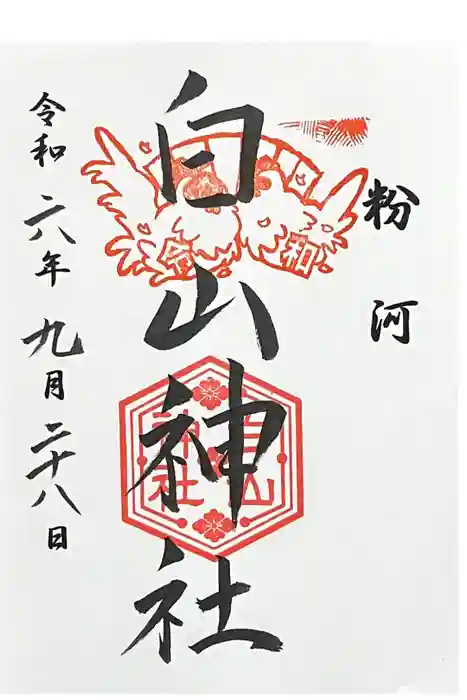 粉河
白山神社
令和六年九月二十八日
令和
白山
神社